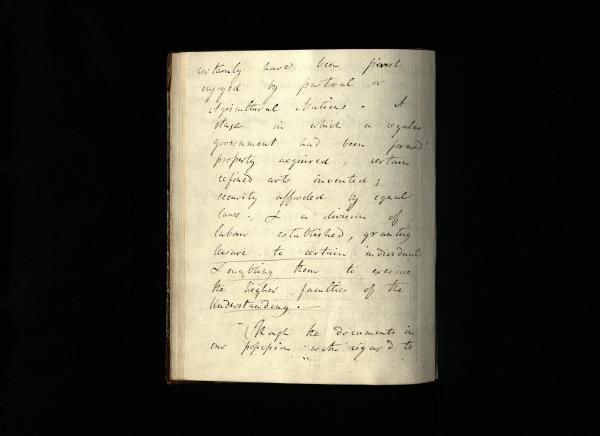 certainly have been first
enjoyed by pastoral or
Agricultural Nations - A
stage in which a regular
government had been formed!
property acquired, certain
refined arts invented;
security afforded by equal
laws-, & a division of
labour established, granting
leisure to certain individuals
& enabling them to exercise
the higher faculties of the
Understanding. —
- Though the documents in
our possession with regard to